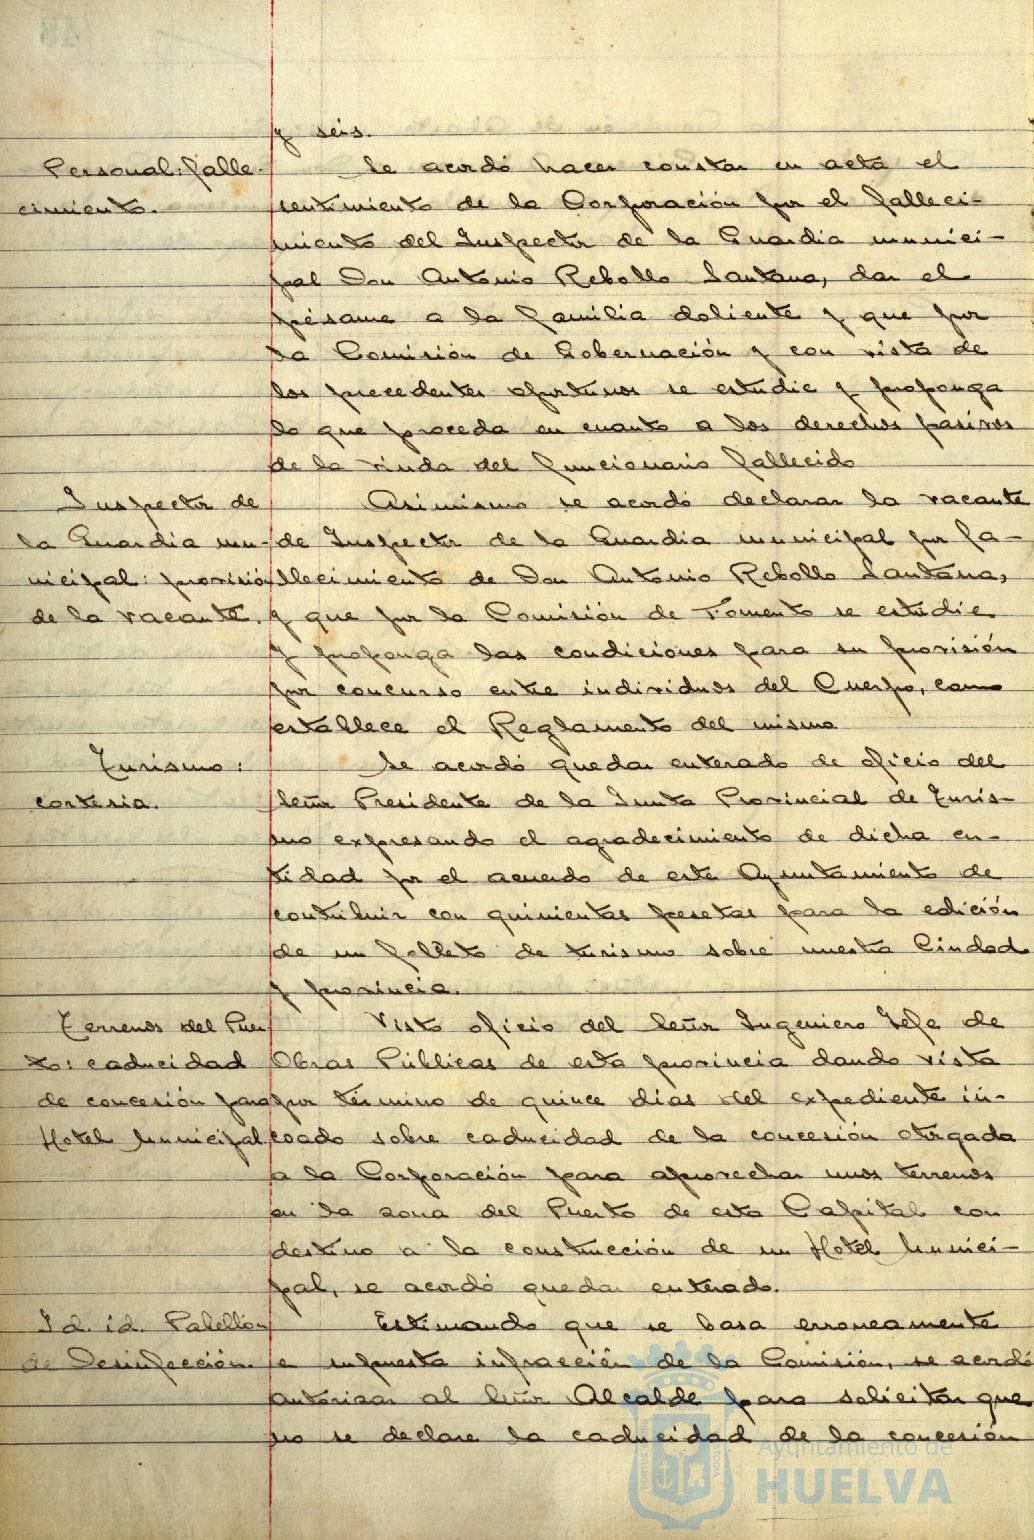 y seis.
Personal: falle-
cimiento.
Se acordó hacer constar en acta el
sentimiento de la Corporación por el falleci-
miento del Inspector de la Guardia munici-
pal Don Antonio Rebollo Santana, dar el
pésame a la familia doliente y que por
la Comisión de Gobernación y con vista de
los precedentes oportunos se estudie y proponga
lo que proceda en cuanto a los derechos pasivos
de la viuda del funcionario fallecido
Inspector de
la Guardia mu-
nicipal: provisión
de la vacante.
Asimismo se acordó declarar la vacante
de Inspector de la Guardia municipal por fa-
llecimiento de Don Antonio Rebollo Santana,
y que por la Comisión de Fomento se estudie
y proponga las condiciones para su provisión
por concurso entre individuos del Cuerpo, como
establece el Reglamento del mismo
Turismo:
cortesia.
Se acordó quedar enterado de oficio del
Señor Presidente de la Junta Provincial de Turis-
mo expresando el agradecimiento de dicha en-
tidad por el acuerdo de este Ayuntamiento de
contribuir con quinientas pesetas para la edición
de un folleto de turismo sobre nuestra Ciudad
y provincia.
Terrenos del Puer
to: caducidad
de concesión para
Hotel Municipal
Visto oficio del Señor Ingeniero Jefe de
Obras Públicas de esta provincia dando vista
por término de quince días del expediente in-
coado sobre caducidad de la concesión otorgada
a la Corporación para aprovechar unos terrenos
en la zona del Puerto de esta Capital con
destino a la construcción de un Hotel Munici-
pal, se acordó quedar enterado.
Id. id. Pabellón
de Desinfección.
Estimando que se basa erroneamente
e supuesta infracción de la Comisión, se acordó
autorizar al Señor Alcalde para solicitar que
no se declare la caducidad de la concesión
Ayuntamiento de
HUELVA